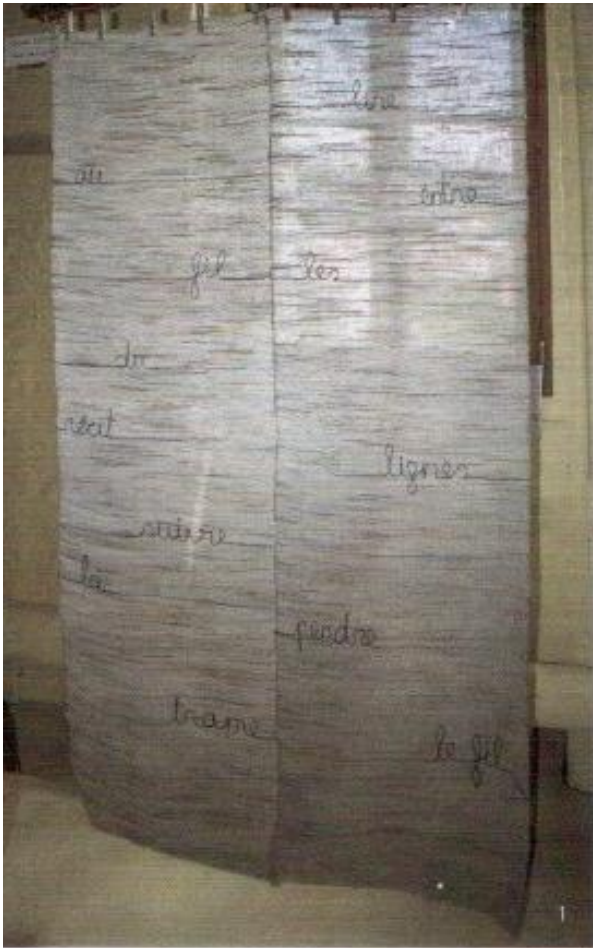 au
fil
du
récit
suivre
la
trame
lire
entre
les
lignes
perdre
le fil